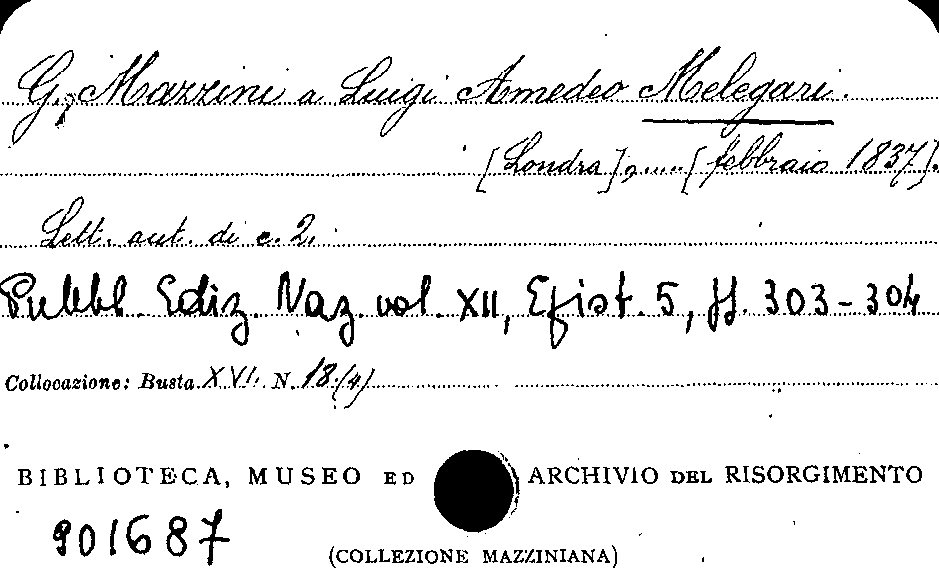 G. Mazzini a Luigi Amedeo Melegari.
[Londra], ..... [febbraio 1837].
Lett. aut. di c. 2.
Pubbl. Ediz. Naz. vol. XII, Epist. 5, pp. 303-304
Collocazione: Busta XVI. N. 18.(4)
BIBLIOTECA, MUSEO ED ARCHIVIO DEL RISORGIMENTO
901687
(COLLEZIONE MAZZINIANA)